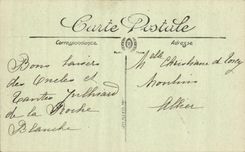 Carte Postale
Correspondance
Adresse
Bons baisers
des Oncles et
Tantes
de la Roche
Blanche
Melle Christiane d
Moulins
Allier